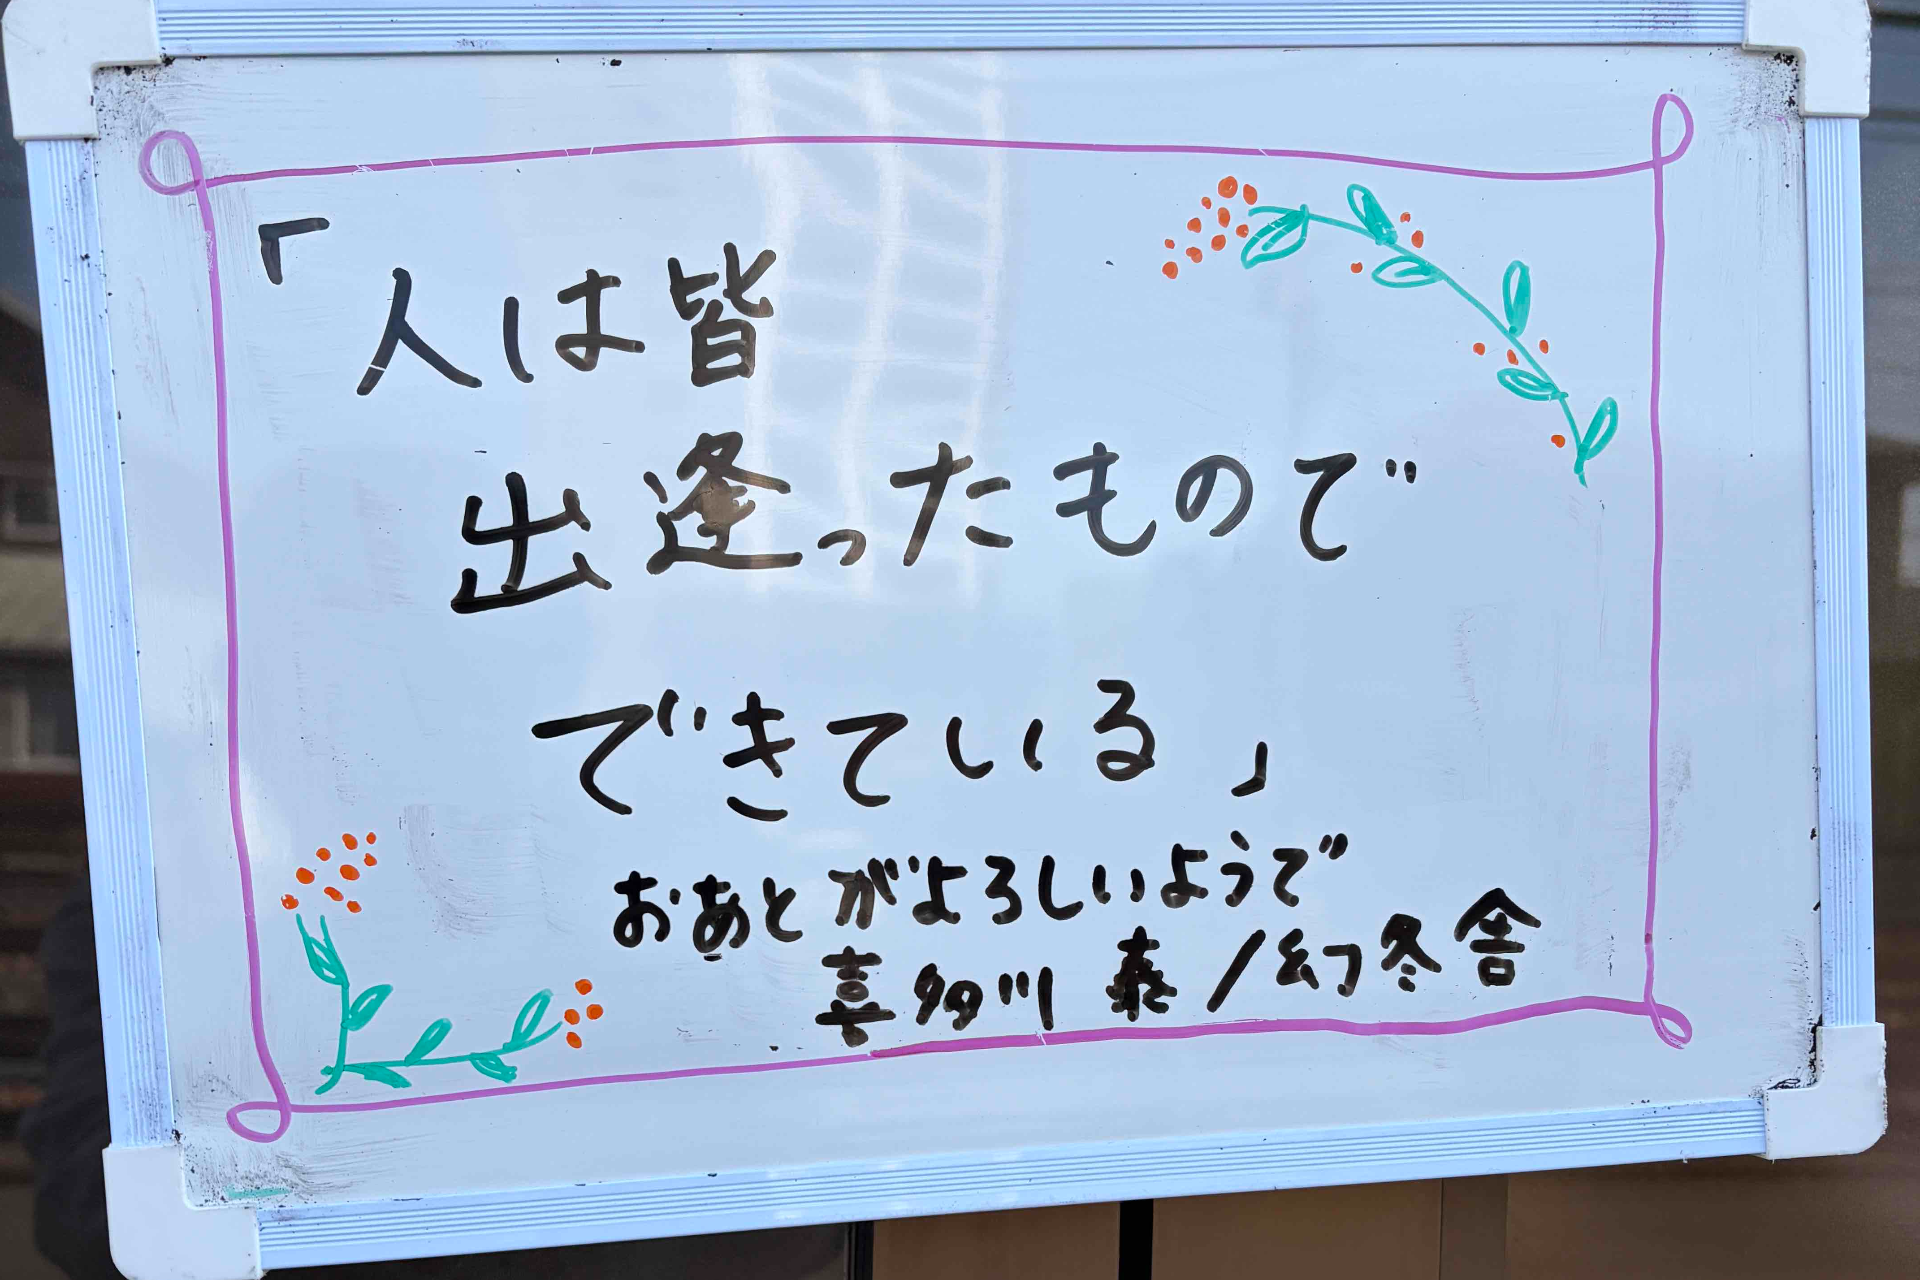 「人は皆
出逢ったもので
できている」
おあとがよろしいようで
喜多川 泰/幻冬舎